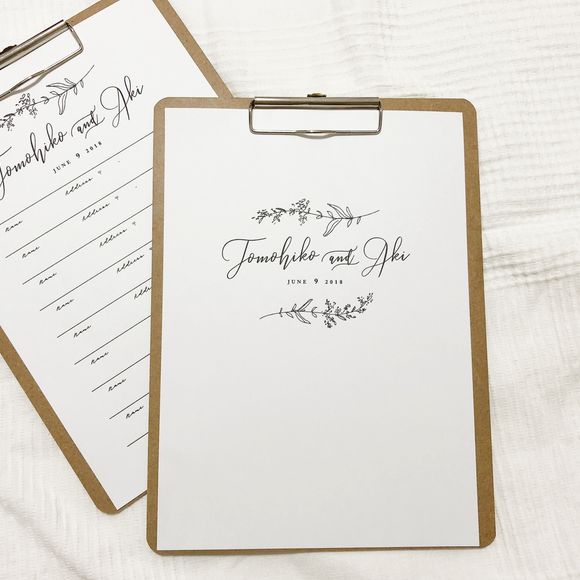 Tomohiko and Aki
JUNE 9 2018
name
address 〒
name
address 〒
name
address 〒
name
address 〒
name
name
name
name
Tomohiko and Aki
JUNE 9 2018